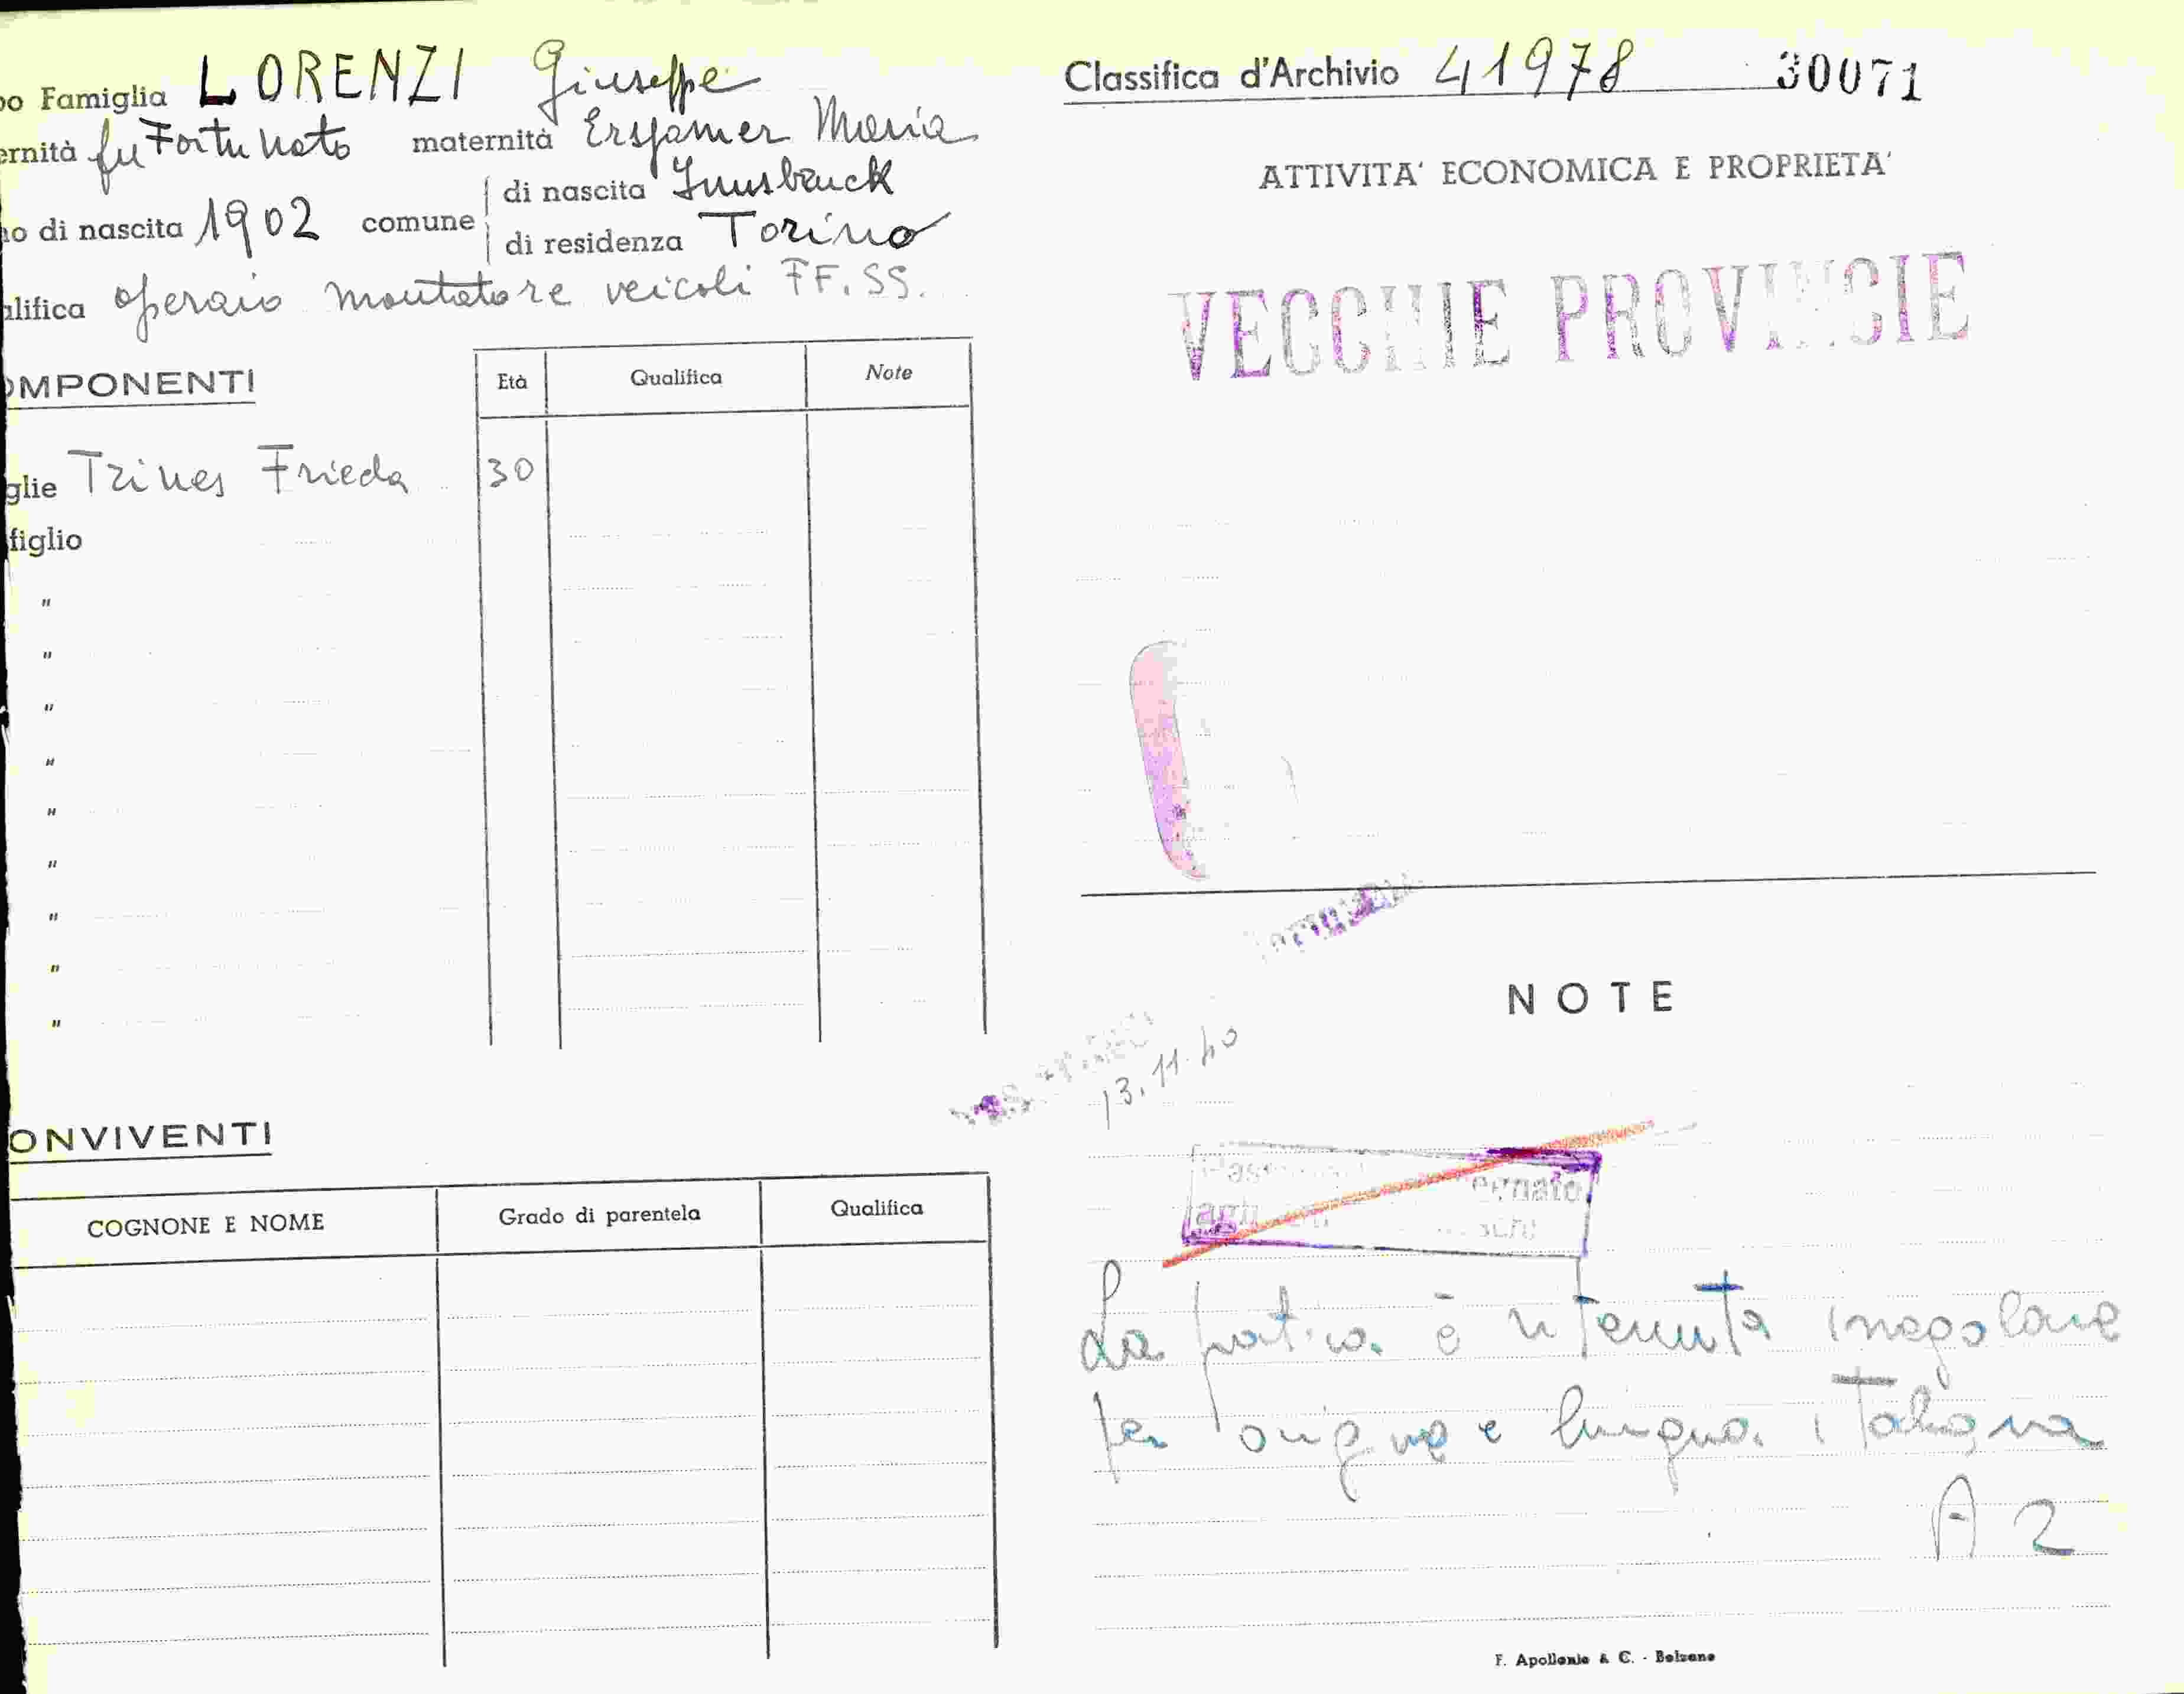 po Famiglia LORENZI Giuseppe
ernità fu Fortunato maternità Erspamer Maria
no di nascita 1902 comune di nascita Innsbruck
di residenza Torino
alifica operaio montatore veicoli FF. SS.
OMPONENTI
Età Qualifica Note
glie Trines Frieda 30
figlio
"
"
"
"
"
"
"
"
"
ONVIVENTI
COGNONE E NOME Grado di parentela Qualifica
Classifica d'Archivio 41978 30071
ATTIVITA' ECONOMICA E PROPRIETA'
VECCHIE PROVINCIE
NOTE
13.11.40
La pratica è ritenuta irregolare
per origine e lingua italiana
A 2
F. Apollonio & C. - Bolzano